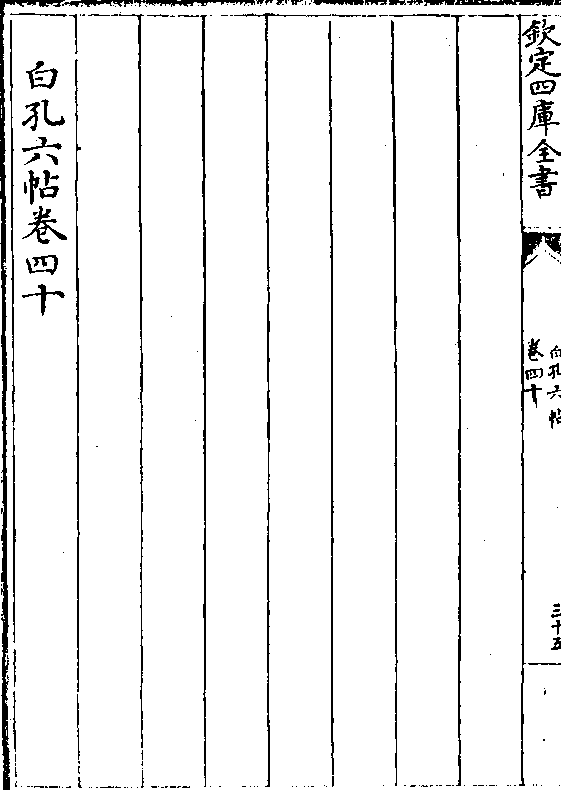 欽定四庫全書
白孔六帖
卷四十
三十五
白孔六帖卷四十